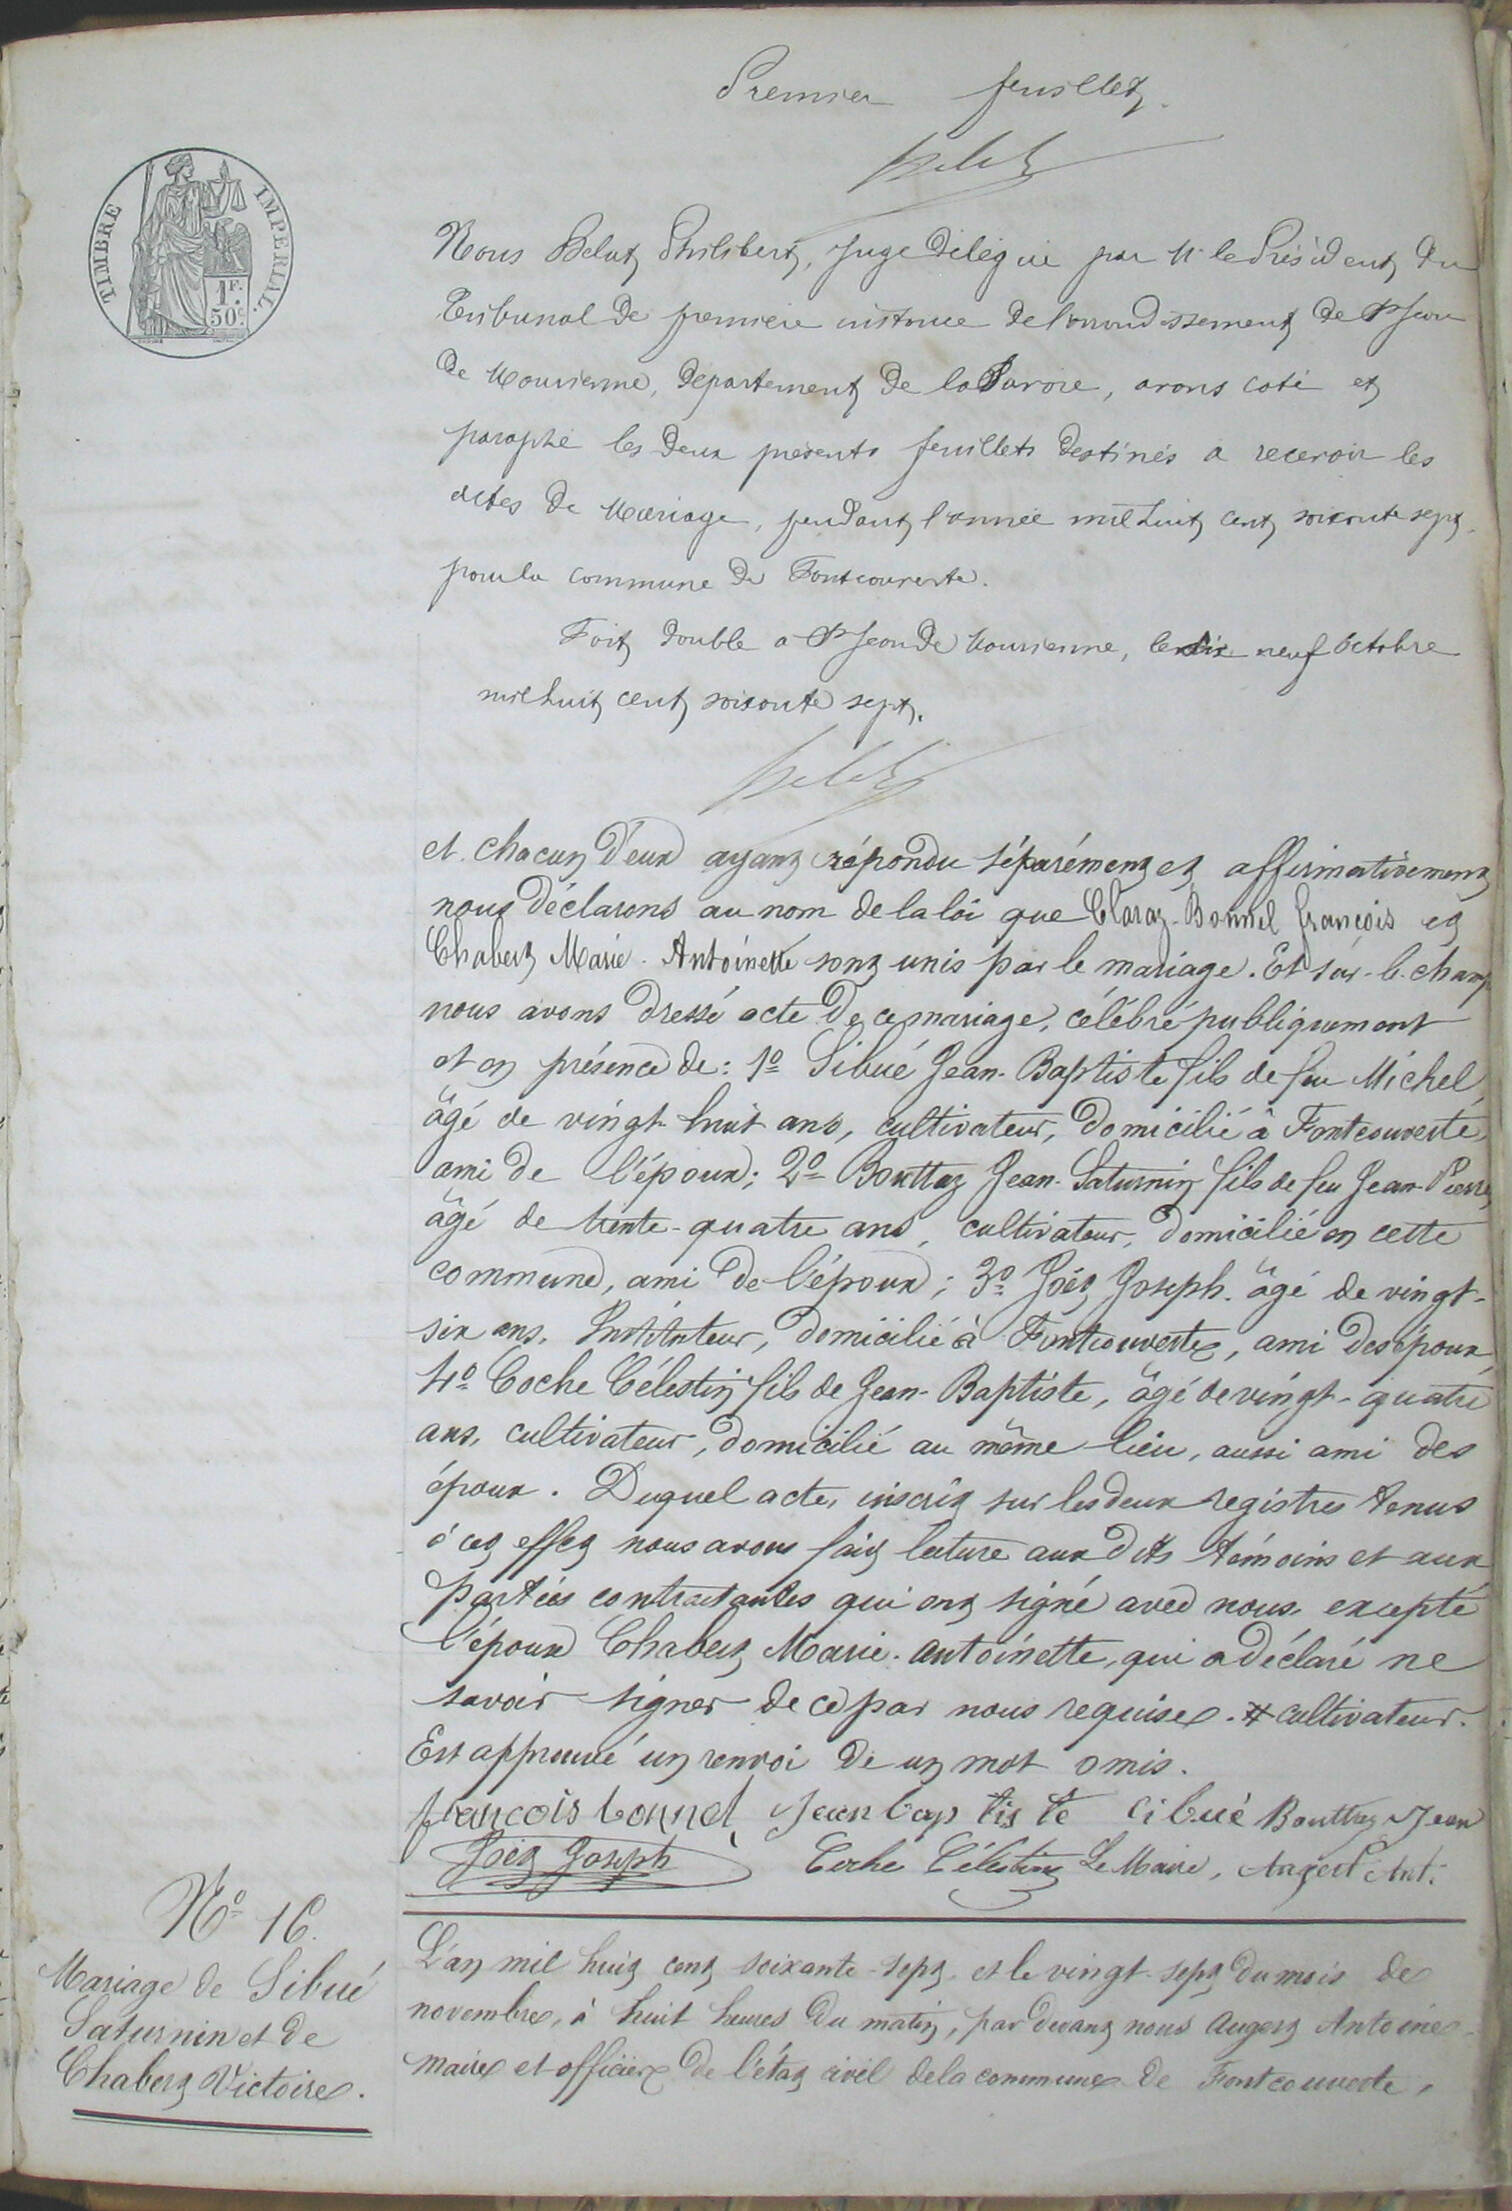 Premier feuillet.
TIMBRE IMPERIAL.
1F.
50c
Nous Belut Philibert, Juge Délégué par Mr le Président du
Tribunal de première instance de l'arrondissement de St Jean
de Maurienne, département de la Savoie, avons coté et
paraphé les deux présents feuillets destinés à recevoir les
actes de Mariage, pendant l'année mil huit cent soixante sept,
pour la commune de Fontcouverte.
Fait double a St Jean de Maurienne, le dix neuf octobre
mil huit cent soixante sept.
et chacun d'eux ayant répondu séparément et affirmativement
nous déclarons au nom de la loi que Claraz-Bonnel françois et
Chabert Marie-Antoinette sont unis par le mariage. Et sur-le-champ
nous avons dressé acte de ce mariage, célébré publiquement
et en présence de: 1º Sibué Jean-Baptiste fils de feu Michel,
âgé de vingt-huit ans, cultivateur, domicilié à Fontcouverte,
ami de l'époux; 2º Bouttaz Jean-Saturnin fils de feu Jean-Pierre,
âgé de trente-quatre ans, cultivateur, domicilié en cette
commune, ami de l'époux; 3º Joët Joseph âgé de vingt-
six ans, Instituteur, domicilié à Fontcouverte, ami des époux,
4º Coche Célestin fils de Jean-Baptiste, âgé de vingt-quatre
ans, cultivateur, domicilié au même lieu, aussi ami des
époux. Duquel acte, inscrit sur les deux registres tenus
à cet effet nous avons fait lecture aux dits témoins et aux
parties contractantes qui ont signé avec nous, excepté
l'épouse Chabert Marie-Antoinette, qui a déclaré ne
savoir signer de ce par nous requise. # cultivateur.
Est approuvé un renvoi de un mot omis.
françois bonnel Jean baptiste Cibué Bouttaz Jean
Joët Joseph Coche Célestin Le Maire, Augert Ant.
Nº 16.
Mariage de Sibué
Saturnin et de
Chabert Victoire.
L'an mil huit cent soixante-sept et le vingt-sept du mois de
novembre, à huit heures du matin, par devant nous Augert Antoine
maire et officier de l'état civil de la commune de Fontcouverte,